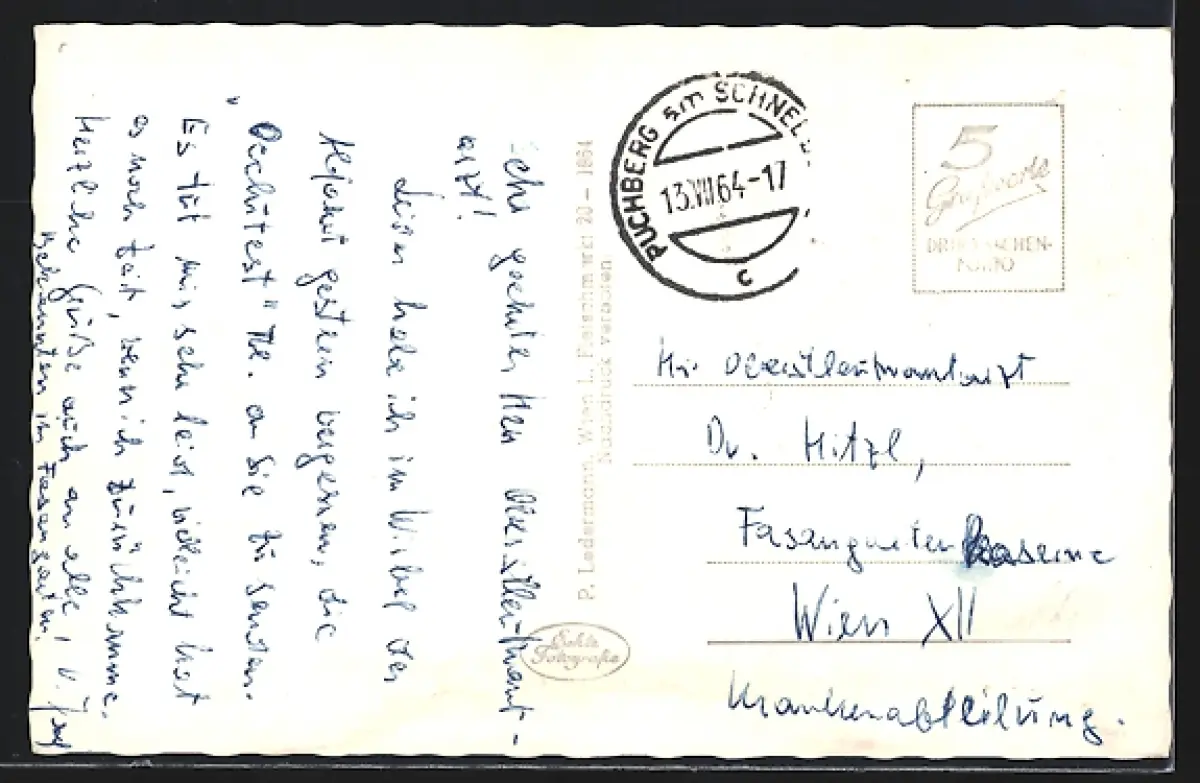 Sehr geehrter Herr Oberstleutnant-
arzt!
Leider habe ich im Wirbel der
Abfahrt gestern vergessen, die
„Oechütest" Nr. an Sie zu senden.
Es tut mir sehr leid, vielleicht hat
es noch Zeit, wenn ich zurückkomme.
Herzliche Grüße auch an alle
Bekannten im Fasangarten!
P. Ledermann, Wien I., Fleischmarkt 20 – 1864
Nachdruck verboten
Echte
Fotografie
PUCHBERG am SCHNEE
13.VII 64-17
c
5
Grußworte
DRUCKSACHEN-
PORTO
Hr. Oberstleutnantarzt
Dr. Hitzl,
Fasangartenkaserne
Wien XII
Krankenabteilung.